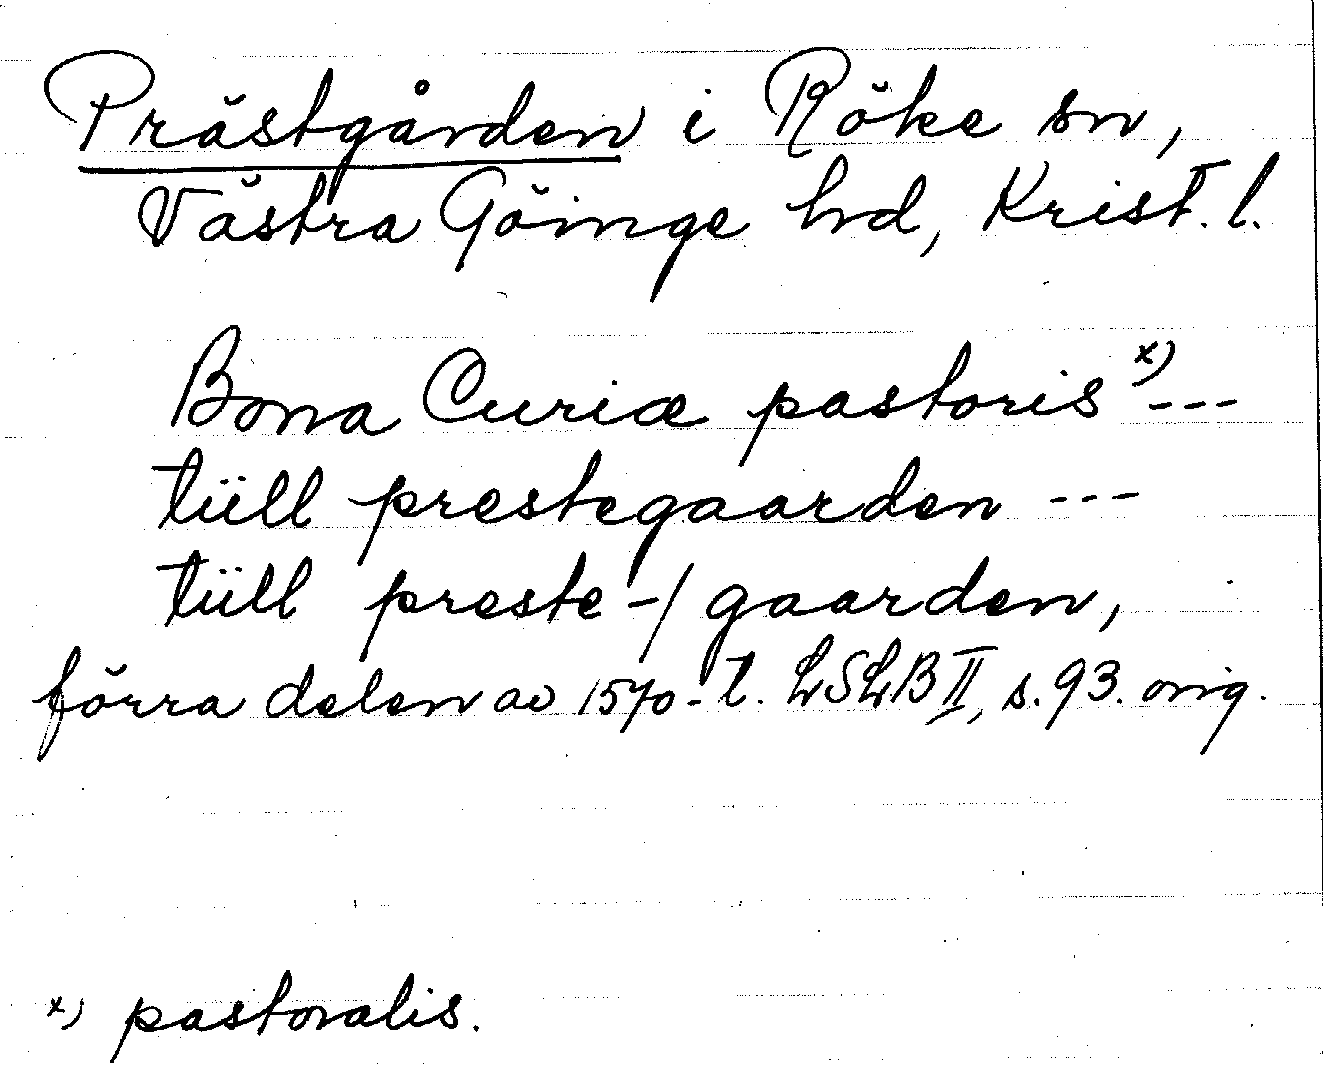 Prästgården i Röke sn,
Västra Göinge hd, Krist. l.
Bona Curiæ pastoris x) ---
tüll prestegaarden ---
tüll preste-/gaarden,
förra delen av 1570-t. LSLB II, s. 93. orig.
x) pastoralis.